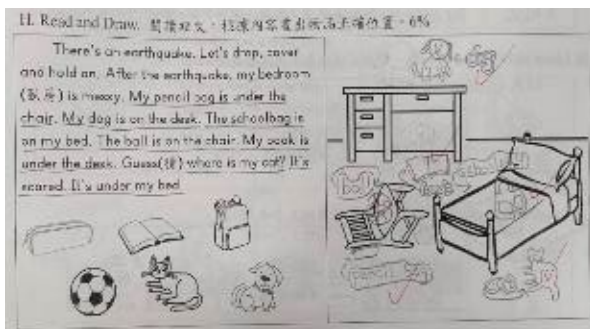 H. Read and Draw. 閱讀短文，根據內容畫出所有正確位置。6%
There's an earthquake. Let's drop, cover
and hold on. After the earthquake, my bedroom
(臥房) is messy. My pencil bag is under the
chair. My dog is on the desk. The schoolbag is
on my bed. The ball is on the chair. My book is
under the desk. Guess(猜) where is my cat? It's
scared. It's under my bed.
ball